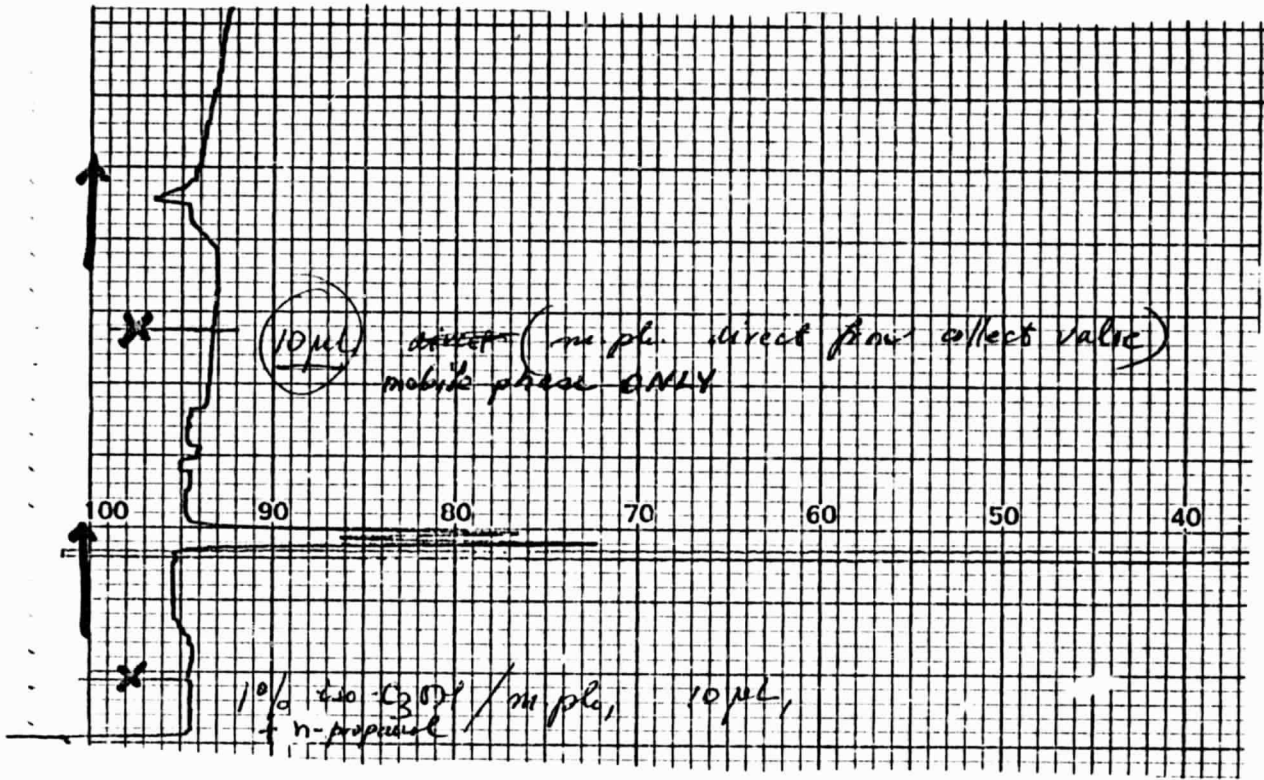 10 µL (m. ph. direct from collect valve)
mobile phase ONLY
100 90 80 70 60 50 40
1% iso-C₃OH / m. ph., 10 µL,
+ n-propanol